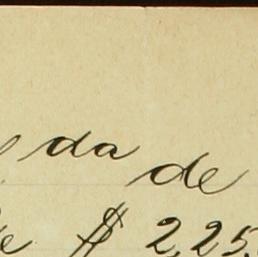 da de
$ 2,25